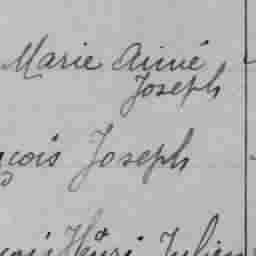 Marie Aimé
Joseph
çois Joseph
çois Henri Julien